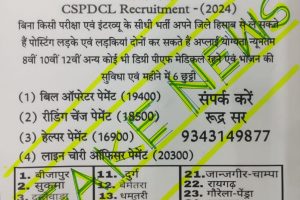 CSPDCL Recruitment -(2024)
बिना किसी परीक्षा एवं इंटरव्यू के सीधी भर्ती अपने जिले हिसाब से ले सकते
हैं पोस्टिंग लड़के एवं लड़कियां दोनों कर सकते हैं अप्लाई योग्यता न्यूनतम
8वीं 10वीं 12वीं अन्य कोई भी डिग्री पीएफ मेडिकल रहने एवं भोजन की
सुविधा एवं महीने में 6 छुट्टी
(1) बिल ऑपरेटर पेमेंट (19400)
(2) रीडिंग चेंज पेमेंट (18500)
(3) हेल्पर पेमेंट (16900)
(4) लाइन चोरी ऑफिसर पेमेंट (20300)
संपर्क करें
रूद्र सर
9343149877
FAKE NEWS
1. बीजापुर
2. सुकमा
3. दन्तेवाड़ा
11. दुर्ग
12. बेमेतरा
13. धमतरी
21. जान्जगीर-चाम्पा
22. रायगढ़
23. गौरेला-पेंड्रा